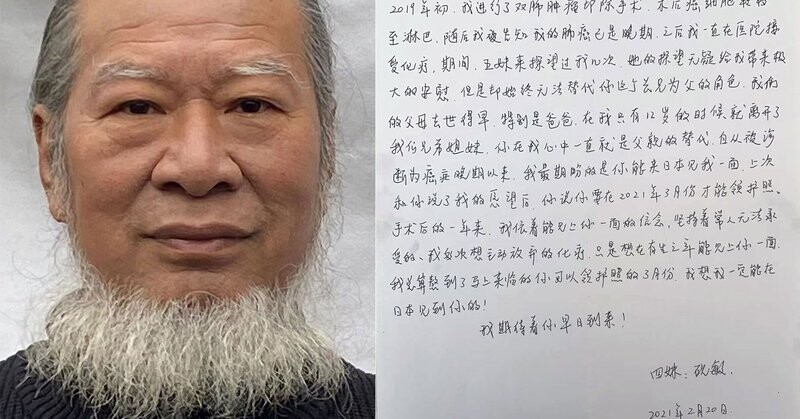 2019年初,我进行了双肺肿瘤切除手术,术后癌细胞转移
至淋巴,随后我被告知我的肺癌已是晚期,之后我一直在医院接
受化疗,期间,五妹来探望过我几次,她的探望无疑给我带来极
大的安慰,但是却始终无法替代你这长兄为父的角色,我们
的父母去世得早,特别是爸爸,在我只有12岁的时候就离开了
我们兄弟姐妹,你在我心中一直就是父亲的替代,自从被诊
断为癌症晚期以来,我最期盼的是你能来日本见我一面,上次
和你说了我的愿望后,你说你要在2021年3月份才能领护照,
手术后的一年来,我依着能见上你一面的信念,坚持着常人无法承
受的、我多次想主动放弃的化疗,只是想在有生之年能见上你一面,
我总算熬到了马上来临的你可以领护照的3月份,我想我一定能在
日本见到你的!
我期待着你早日到来!
四妹:
2021年2月20日.